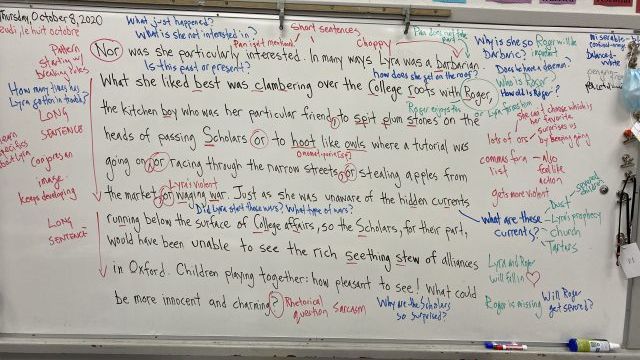 Thursday, October 8, 2020
jeudi, le huit octobre
What just happened?
What is she not interested in?
Pan isn't mentioned
short sentences
Choppy
Pan does not take part
Nor was she particularly interested. In many ways Lyra was a barbarian.
Is this past or present?
how does she get on the roof?
What she liked best was clambering over the College roofs with Roger,
the kitchen boy who was her particular friend, to spit plum stones on the
Roger enjoys too
heads of passing Scholars or to hoot like owls where a tutorial was
onomatopoeia
going on, or racing through the narrow streets, or stealing apples from
Lyra's violent
the market, or waging war. Just as she was unaware of the hidden currents
Did Lyra start these wars? What type of wars?
running below the surface of College affairs, so the Scholars, for their part,
would have been unable to see the rich seething stew of alliances
in Oxford. Children playing together: how pleasant to see! What could
be more innocent and charming?
Rhetorical question
Sarcasm
Why are the Scholars
so surprised?
Pattern
starting w/
breaking rules
How many times has
Lyra gotten in trouble?
LONG
SENTENCES
Comparison
image
keeps developing
LONG
SENTENCE
Why is she so
Barbaric?
Roger will be
important
Does he have a daemon?
Who is Roger?
How old is Roger?
Lyra
She can't choose which is
her favorite
surprises us
by keeping going
lots of ors
commas for a
list
also
feel like
action
gets more violent
What are these
currents?
Dust
severed
children
Lyra's prophecy
Church
Tartars
Lyra and Roger
will fall in
Roger is missing
Will Roger
get severed?